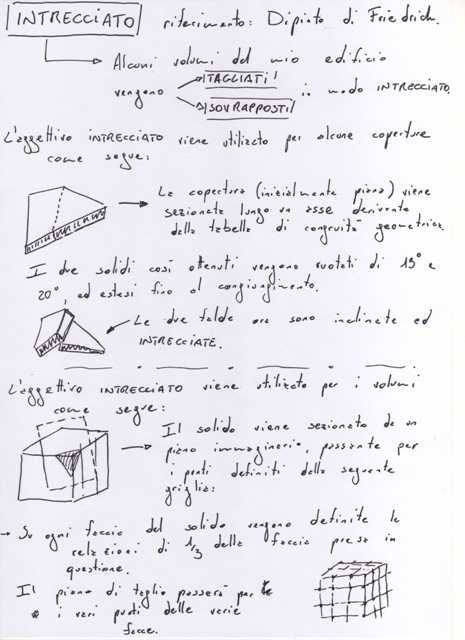 INTRECCIATO riferimento: Dipinto di Friedrich.
Alcuni volumi del mio edificio
vengono TAGLIATI! in modo INTRECCIATO.
SOVRAPPOSTI!
L'aggettivo INTRECCIATO viene utilizzato per alcune coperture
come segue:
La copertura (inizialmente piana) viene
sezionata lungo un asse derivante
dalla tabella di congruità geometrica.
I due solidi così ottenuti vengono ruotati di 15° e
20°, ed estesi fino al congiungimento.
Le due falde ora sono inclinate ed
INTRECCIATE.
L'aggettivo INTRECCIATO viene utilizzato per i volumi
come segue:
Il solido viene sezionato da un
piano immaginario, passante per
i punti definiti dalla seguente
griglia:
→ Su ogni faccia del solido vengono definite le
relazioni di 1/3 della faccia presa in
questione.
Il piano di taglio passerà per
i vari punti delle varie
facce.